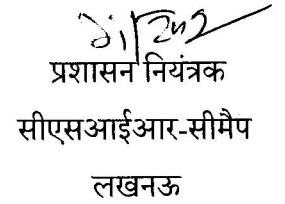 प्रशासन नियंत्रक
सीएसआईआर-सीमैप
लखनऊ